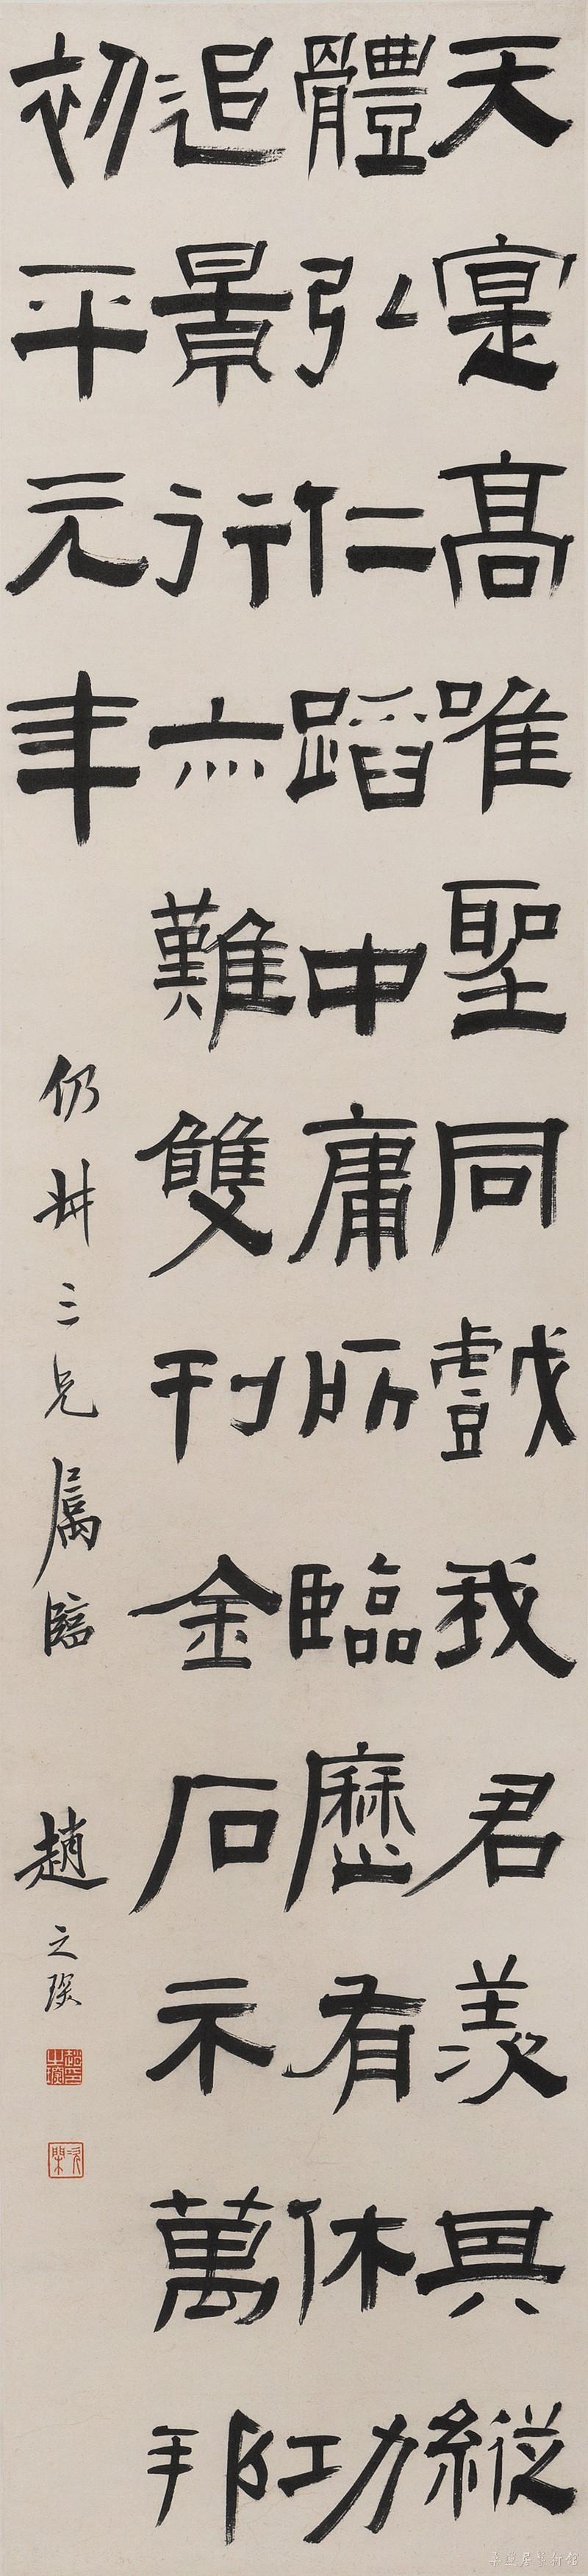 天寔高唯聖同戲我君羨其縱
體弘仁蹈中庸所臨歷有休功
追景行亦難雙刊金石示萬邦
初平元年
仍叔三兄属臨
趙之琛